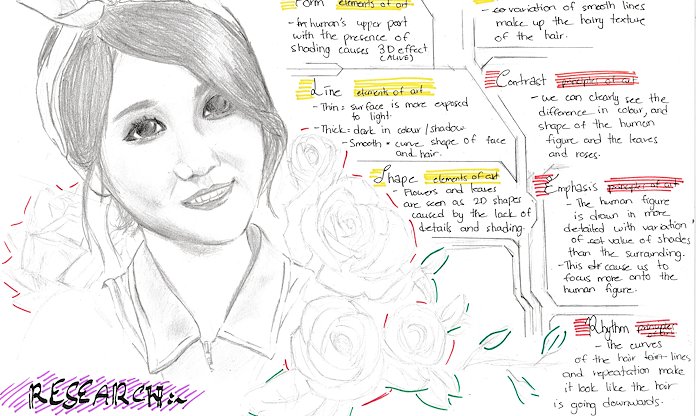 Form elements of art
- human's upper part
with the presence of
shading causes 3D effect
(ALIVE)
Line elements of art
- Thin = surface is more exposed
to light.
- Thick = dark in colour / shadow
- Smooth = curve shape of face
and hair.
Shape elements of art
- Flowers and leaves
are seen as 2D shapes
caused by the lack of
details and shading.
- covariation of smooth lines
make up the hairy texture
of the hair.
Contrast principles of art
- we can clearly see the
difference in colour, and
shape of the human
figure and the leaves
and roses.
Emphasis principles of art
- The human figure
is drawn in more
detailed with variation
of value of shades
than the surrounding.
- This cause us to
focus more onto the
human figure.
Rhythm principles
- The curves
of the hair lines,
and repeatation make
it look like the hair
is going downwards.
RESEARCH:~